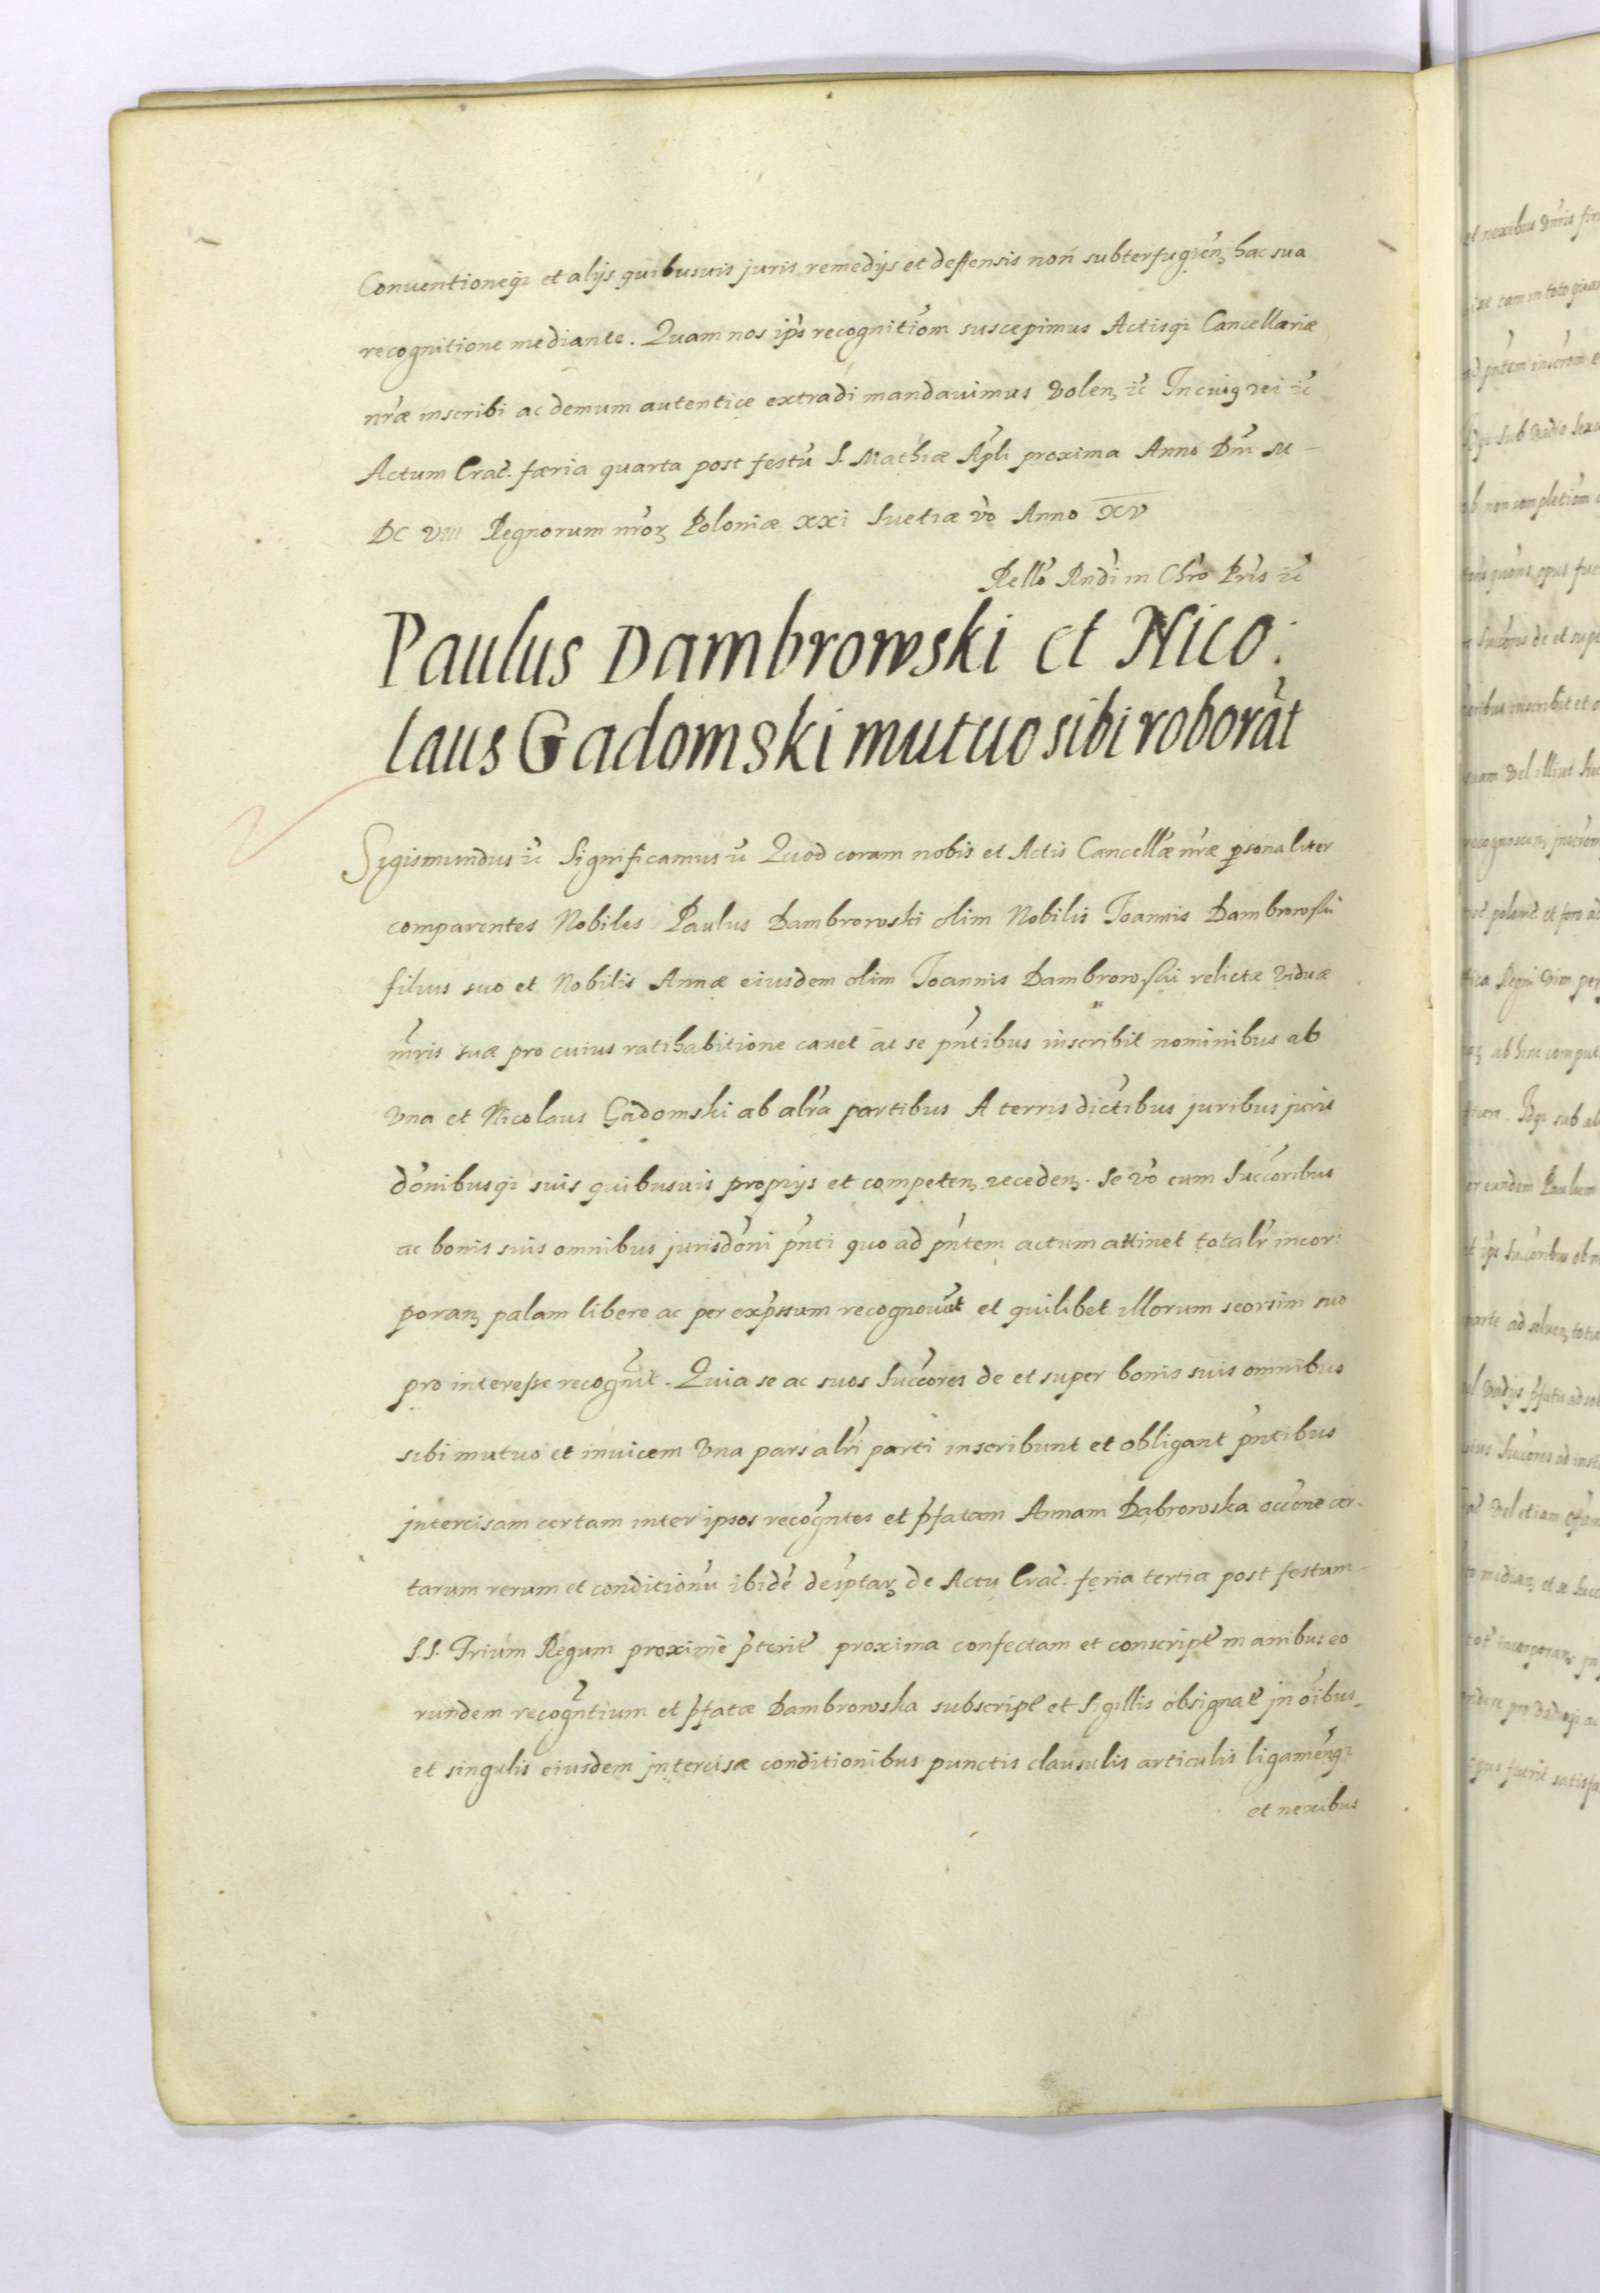 Conventioneq; et alijs quibusuis juris remedijs et deffensis non subterfugien, hac sua
recognitione mediante. Quam nos ips recognitiom suscepimus Actisq; Cancellariæ
nræ inscribi ac demum autentice extradi mandauimus volen, &c In cuiq rei &c
Actum Crac. færia quarta post festu S. Mathiæ Apli proxima Anno Dni M
DC VIII Regnorum nror Poloniæ XXI Suetiæ vo Anno XV
Rello Rndi in Chro Pris &c
Paulus Dambrowski et Nico:
laus Gadomski mutuo sibi roborat
Sigismundus &c Significamus &c Quod coram nobis et Actis Cancellæ nræ personaliter
comparentes Nobiles Paulus Dambrowski olim Nobilis Joannis Dambrowski
filius suo et Nobilis Annæ eiusdem olim Joannis Dambrowski relictæ viduæ
mris suæ pro cuius ratihabitione cauet ac se pntibus inscribit nominibus ab
vna et Nicolaus Gadomski ab alra partibus A terris dictibus juribus juris
donibusq; suis quibusuis proprijs et competen, receden, se vo cum Succoribus
ac bonis suis omnibus jurisdoni pnti quo ad pntem actum attinet totalr incor:
poran, palam libere ac per expssum recognouut et quilibet illorum seorsim suo
pro interesse recognit. Quia se ac suos Succores de et super bonis suis omnibus
sibi mutuo et inuicem vna pars alri parti inscribunt et obligant pntibus
jntercisam certam inter ipsos recogntes et pfatam Annam Dąbrowska occone cer-
tarum rerum et conditionu ibide desiptar de Actu Crac. feria tertia post festum
S.S. Trium Regum proxime pterit proxima confectam et conscript manibus eo
rundem recogntium et pfatæ Dambrowska subscript et Sigillis obsignat jn oibus
et singulis eiusdem jntercisæ conditionibus punctis clausulis articulis ligamenq;
et nexibus